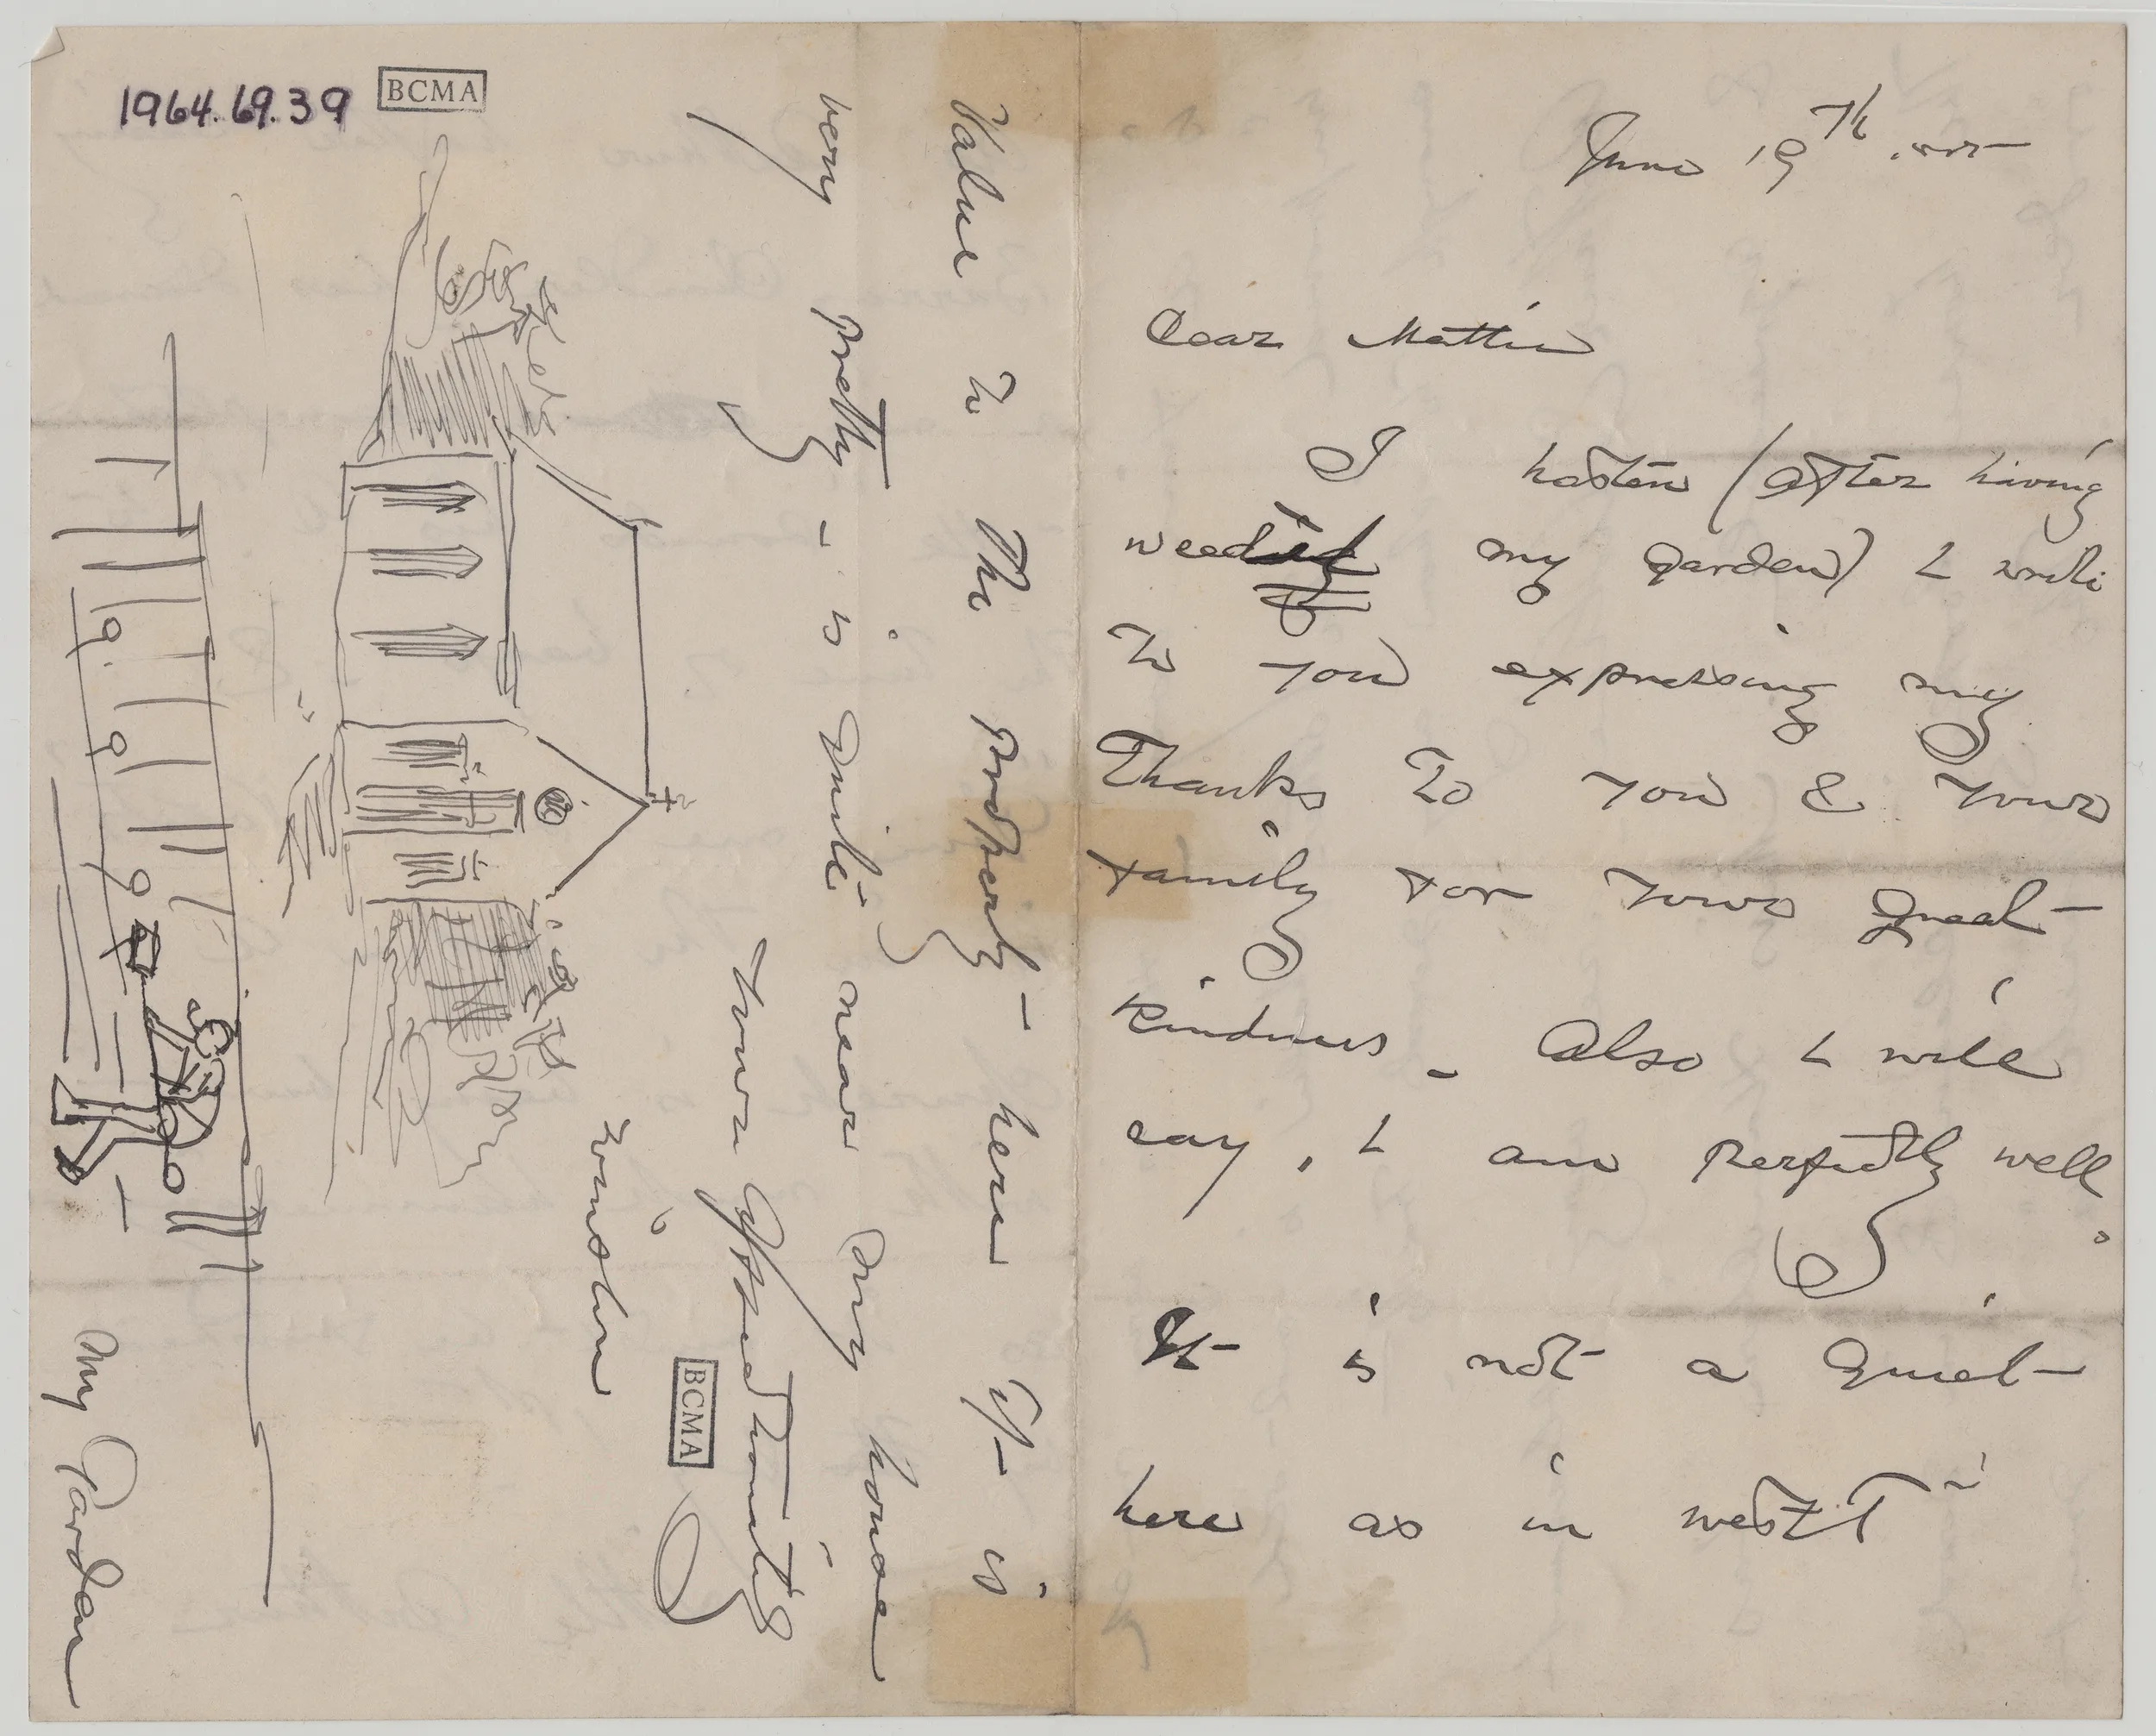 June 19th
Dear Mattie
I hasten (after having
weeded my garden) I write
to you expressing my
Thanks to you & your
family for your great
kindness - Also I will
say, I am perfectly well.
It is not a quiet
here as in west T
Value to the property - here it is
very pretty - is quite near my house
Yours affectionately
Winslow
My Garden
1964.69.39
BCMA
BCMA